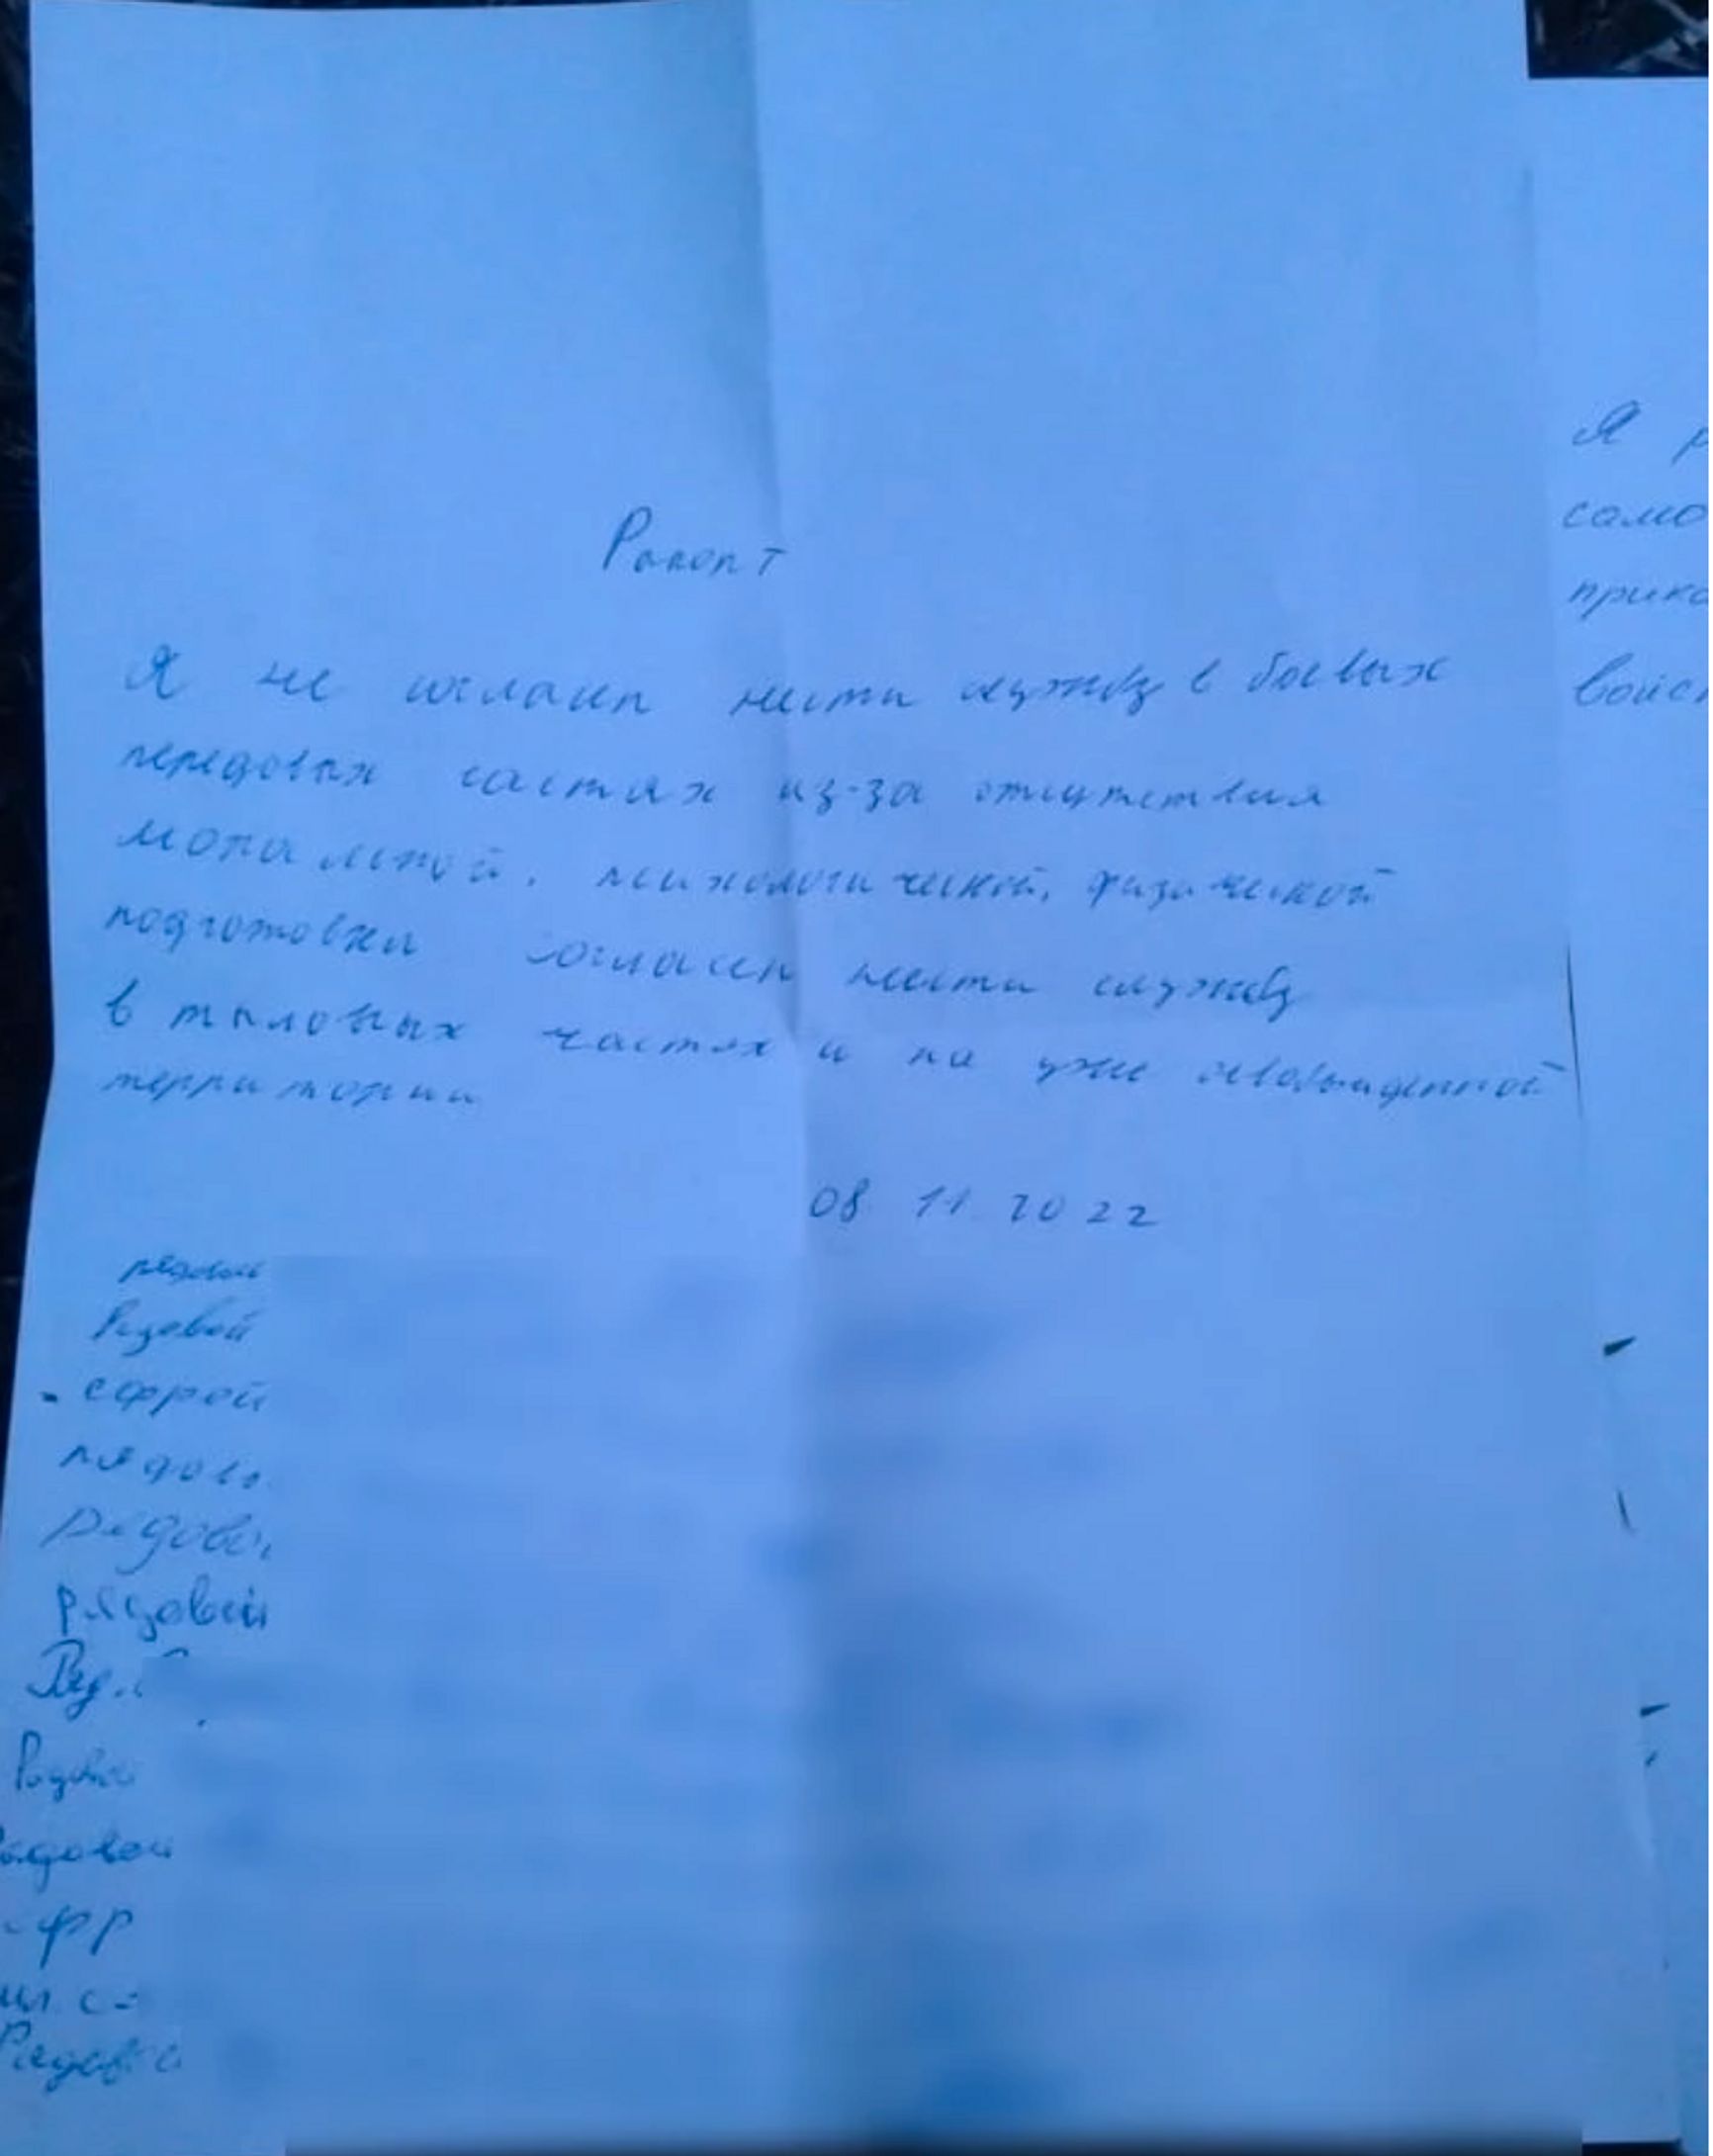 Рапорт
Я не согласен нести службу в боевых
передовых частях из-за отсутствия
моральной, психологической, физической
подготовки согласен нести службу
в тыловых частях и на уже освобожденной
территории
08.11.2022
рядовой
Рядовой
ефрей
рядово
Рядовой
рядовой
Ряд
Рядово
Рядовой
ефр
мл. с
Рядово
Я р
само
прика
войс